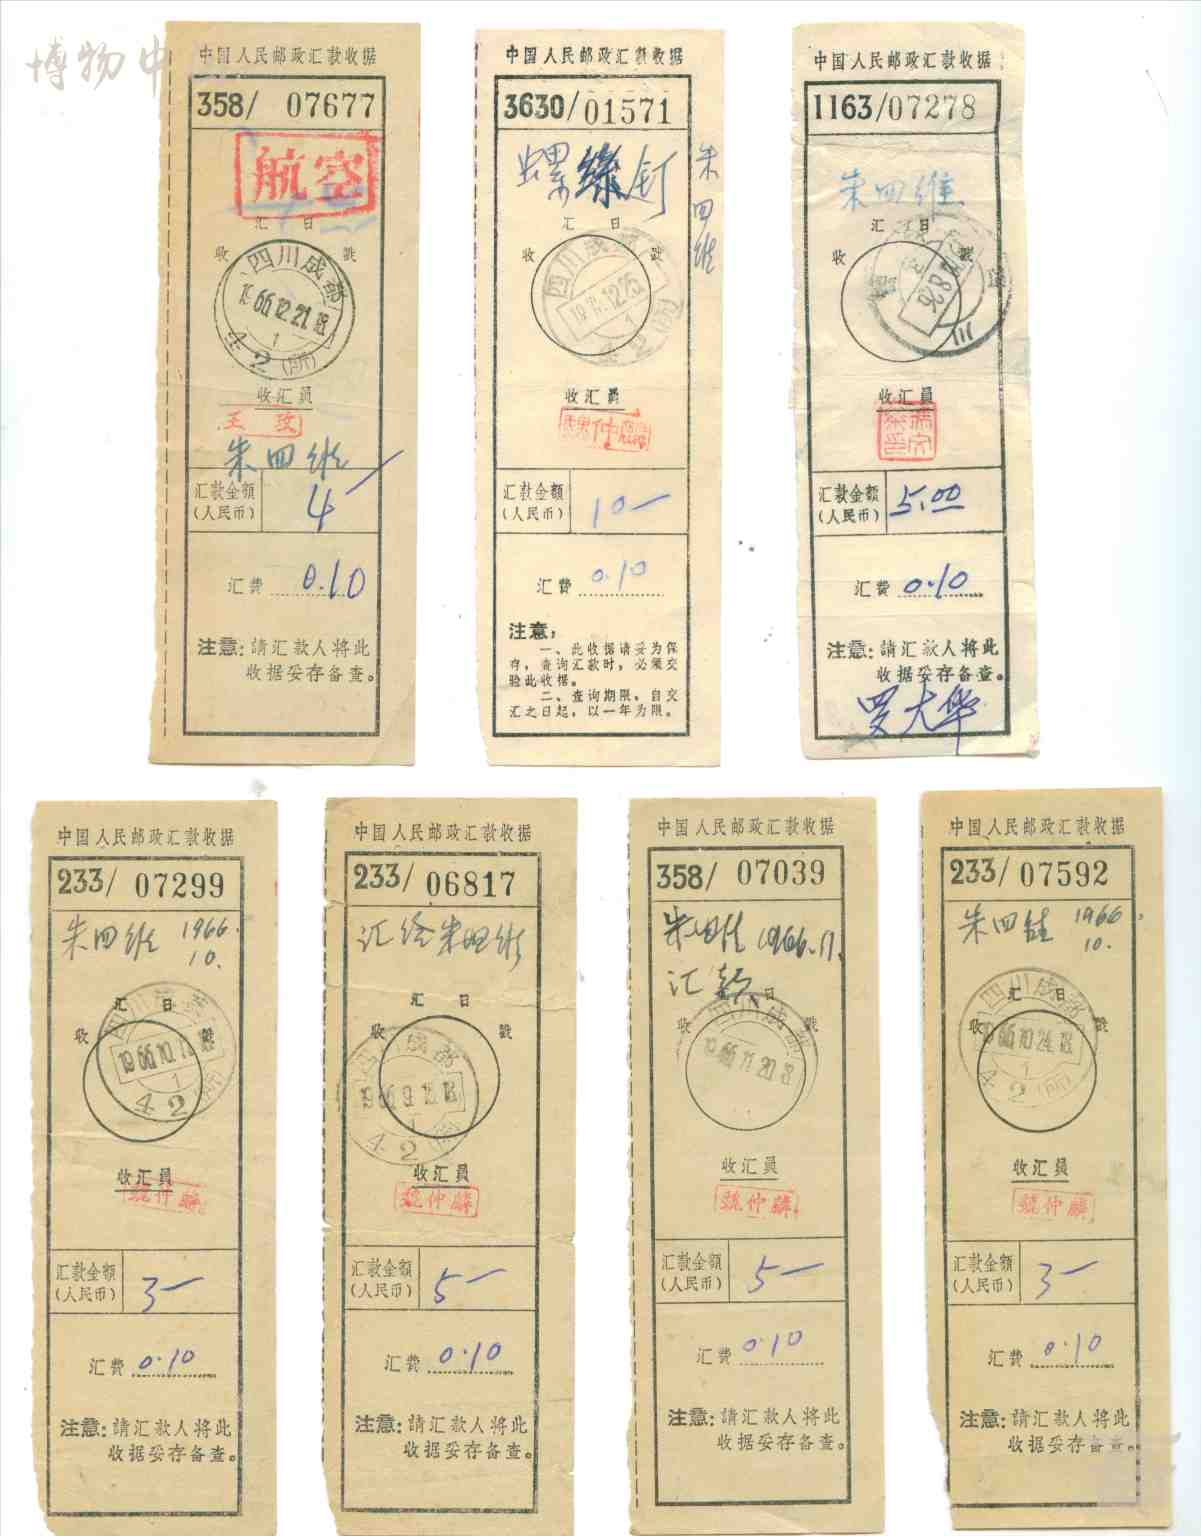 博物中
中国人民邮政汇款收据
358/ 07677
航空
汇 日
收 戳
四川成都
1966.12.21.18
1
42(所)
收汇员
王玫
朱四维
汇款金额
(人民币)
4—
汇费 0.10
注意:請汇款人将此
收据妥存备查。
中国人民邮政汇款收据
3630/01571
螺丝钉
朱四维
汇 日
收 戳
四川成都
12.25
1
42(所)
收汇员
汇款金额
(人民币)
10—
汇费 0.10
注意:
一、此收据请妥为保
存,查询汇款时,必须交
验此收据。
二、查询期限,自交
汇之日起,以一年为限。
中国人民邮政汇款收据
1163/07278
朱四维
汇 日
收 戳
8.26
收汇员
汇款金额
(人民币)
5.00
汇费 0.10
注意:請汇款人将此
收据妥存备查。
罗大华
中国人民邮政汇款收据
233/ 07299
朱四维 1966.
10.
汇 日
收 戳
四川成都
1966.10
1
42(所)
收汇员
號仲麟
汇款金额
(人民币)
3—
汇费 0.10
注意:請汇款人将此
收据妥存备查。
中国人民邮政汇款收据
233/ 06817
汇给朱四维
汇 日
收 戳
四川成都
1966.9
1
42(所)
收汇员
號仲麟
汇款金额
(人民币)
5—
汇费 0.10
注意:請汇款人将此
收据妥存备查。
中国人民邮政汇款收据
358/ 07039
朱四维 1966.11.
汇款
日
收 戳
四川成都
1966.11.20.18
收汇员
號仲麟
汇款金额
(人民币)
5—
汇费 0.10
注意:請汇款人将此
收据妥存备查。
中国人民邮政汇款收据
233/ 07592
朱四维 1966.
10.
汇 日
收 戳
四川成都
1966.10.24.18
1
42(所)
收汇员
號仲麟
汇款金额
(人民币)
3—
汇费 0.10
注意:請汇款人将此
收据妥存备查。